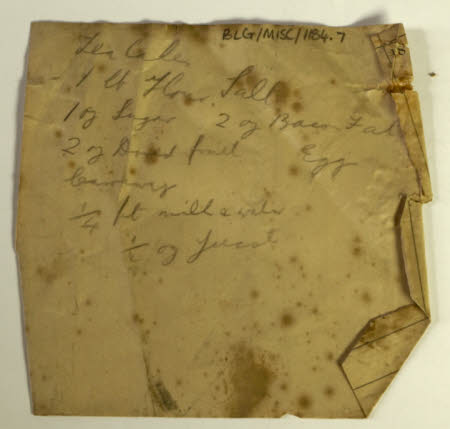 BLG/MISC/1184.7
Tea Cakes
1 lb Flour Salt
1 oz Sugar 2 oz Bacon Fat
2 oz Dried fruit Egg
1/4 pt milk & water
1/2 oz Yeast